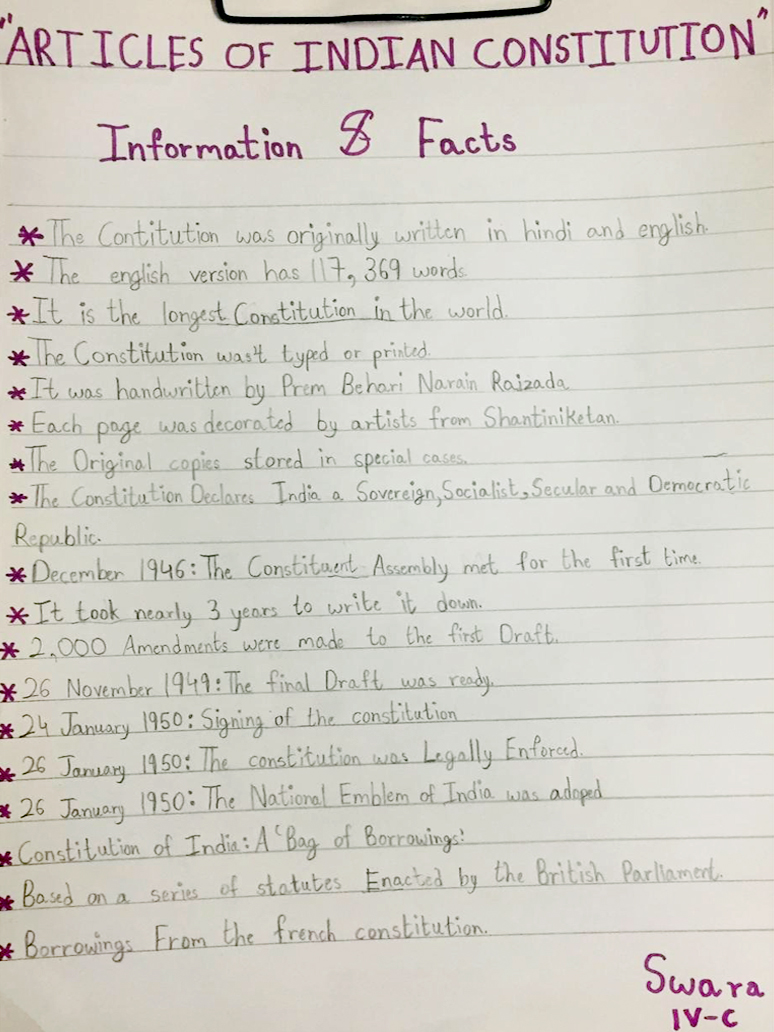 "ARTICLES OF INDIAN CONSTITUTION"
Information & Facts
* The Contitution was originally written in hindi and english.
* The english version has 117,369 words.
* It is the longest Constitution in the world.
* The Constitution was't typed or printed.
* It was handwritten by Prem Behari Narain Raizada
* Each page was decorated by artists from Shantiniketan.
* The Original copies stored in special cases.
* The Constitution Declares India a Sovereign, Socialist, Secular and Democratic
Republic.
* December 1946: The Constituent Assembly met for the first time.
* It took nearly 3 years to write it down.
* 2,000 Amendments were made to the first Draft.
* 26 November 1949: The final Draft was ready.
* 24 January 1950: Signing of the constitution
* 26 January 1950: The constitution was Legally Enforced.
* 26 January 1950: The National Emblem of India was adoped
* Constitution of India: A 'Bag of Borrowings'
* Based on a series of statutes Enacted by the British Parliament.
* Borrowings From the french constitution.
Swara
IV-C